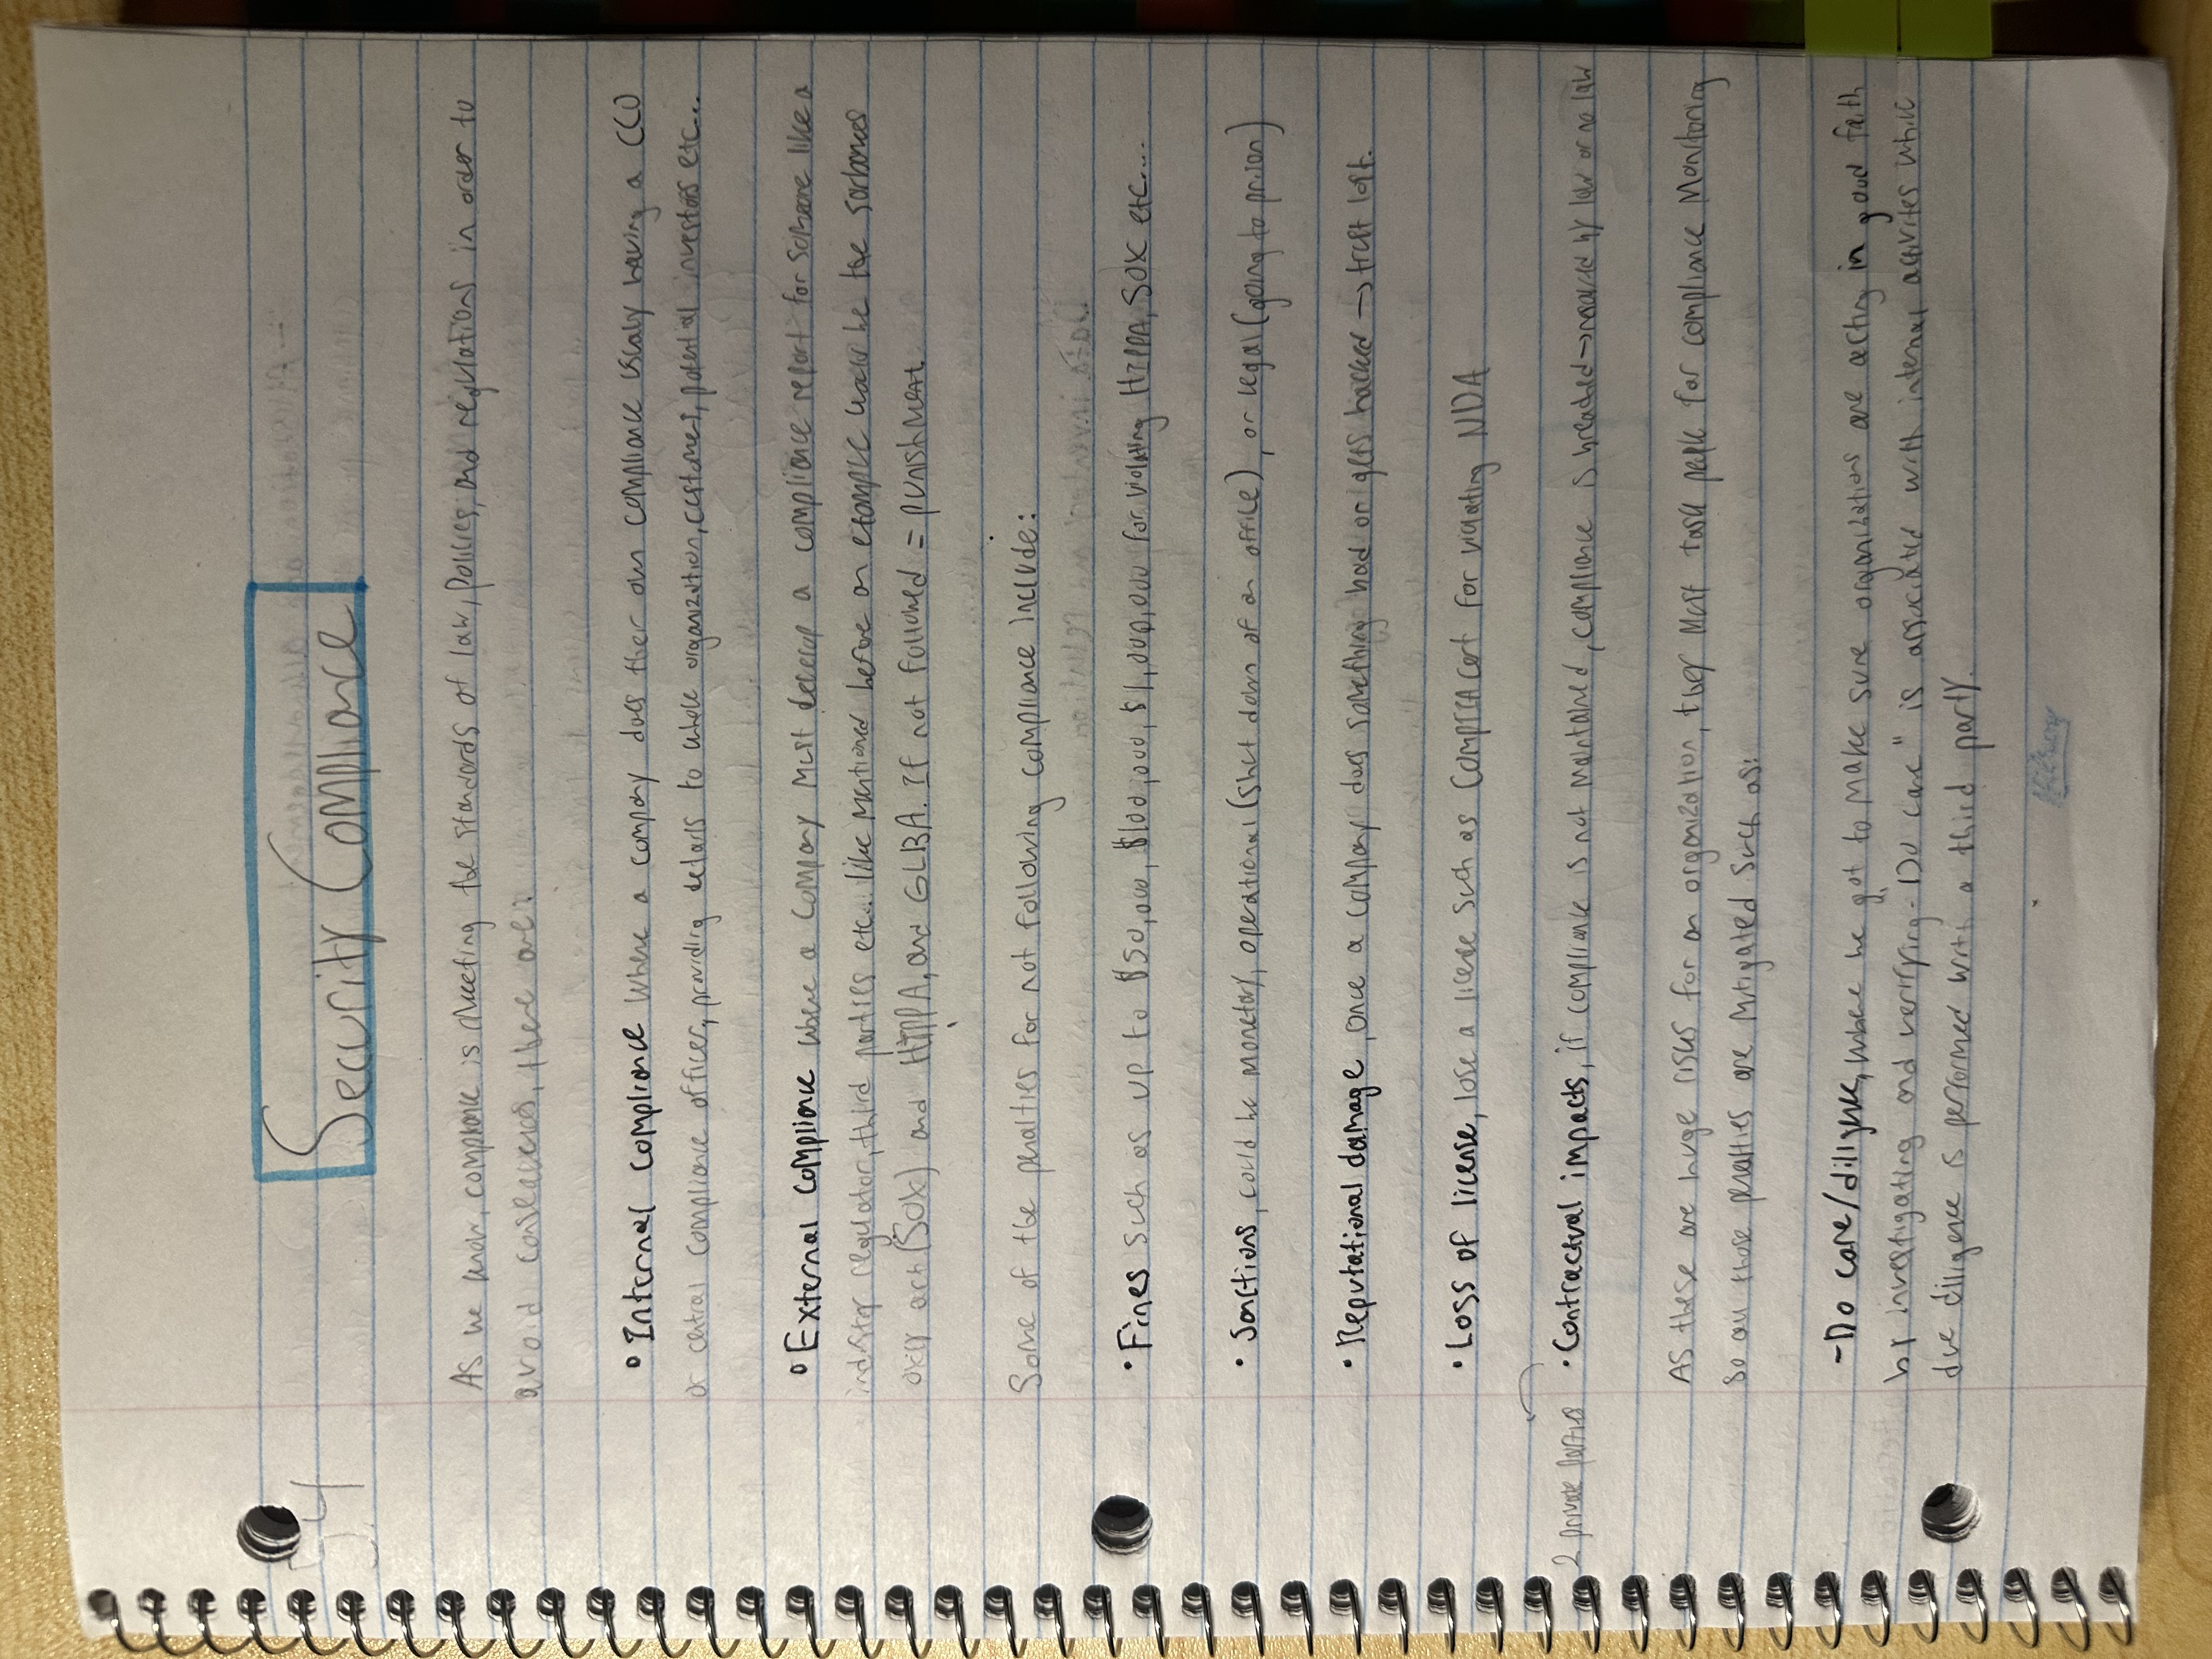 5.4
Security Compliance
As we know, compliance is meeting the standards of law, policies, and regulations in order to
avoid consequences, there are:
Internal compliance where a company does their own compliance usualy having a CCO
or central compliance officer, providing details to whole organization, customers, potential investors etc...
External compliance where a company must develop a compliance report for someone like a
industry regulator, third parties etc... like mentioned before an example would be the sarbanes
oxly act (SOX) and HIPPA, and GLBA. If not followed = punishment.
Some of the penalties for not following compliance include:
• Fines such as up to $50,000, $100,000, $1,000,000 for violating HIPPA, SOX etc....
• Sanctions, could be monetary, operational (shut down of an office), or legal (going to prison)
• Reputational damage, once a company does something bad or gets hacked → trust lost.
• Loss of license, lose a license such as CompTIA cert for violating NDA
2 private parties
• Contractual impacts, if compliance is not maintained, compliance is breached → resolved by law or no law
As these are huge risks for an organization, they must task people for compliance monitoring
so all those penalties are mitigated such as:
- Do care/diligence, where we got to make sure organizations are acting in good faith
by investigating and verifying - "Do care" is associated with internal activites while
due diligence is performed with a third party.